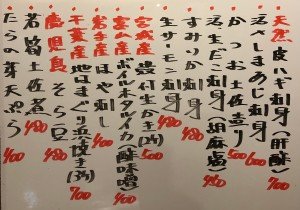 天然 皮ハギ刺身(肝酢) 700
活〆さしまあじ刺身 600
かつお土佐造り 500
活〆だこ刺身(胡麻塩) 480
すみいか刺身 480
生サーモン刺身 480
宮城産 殻付生かき(1ヶ) 500
富山産 ボイル本タツイカ(酢味噌) 400
岩手産 ほや刺し 400
千葉産 地はまぐり浜焼き(3ヶ) 700
鹿児島 そら豆 480
若筍土佐煮 480
たらの芽天ぷら 400